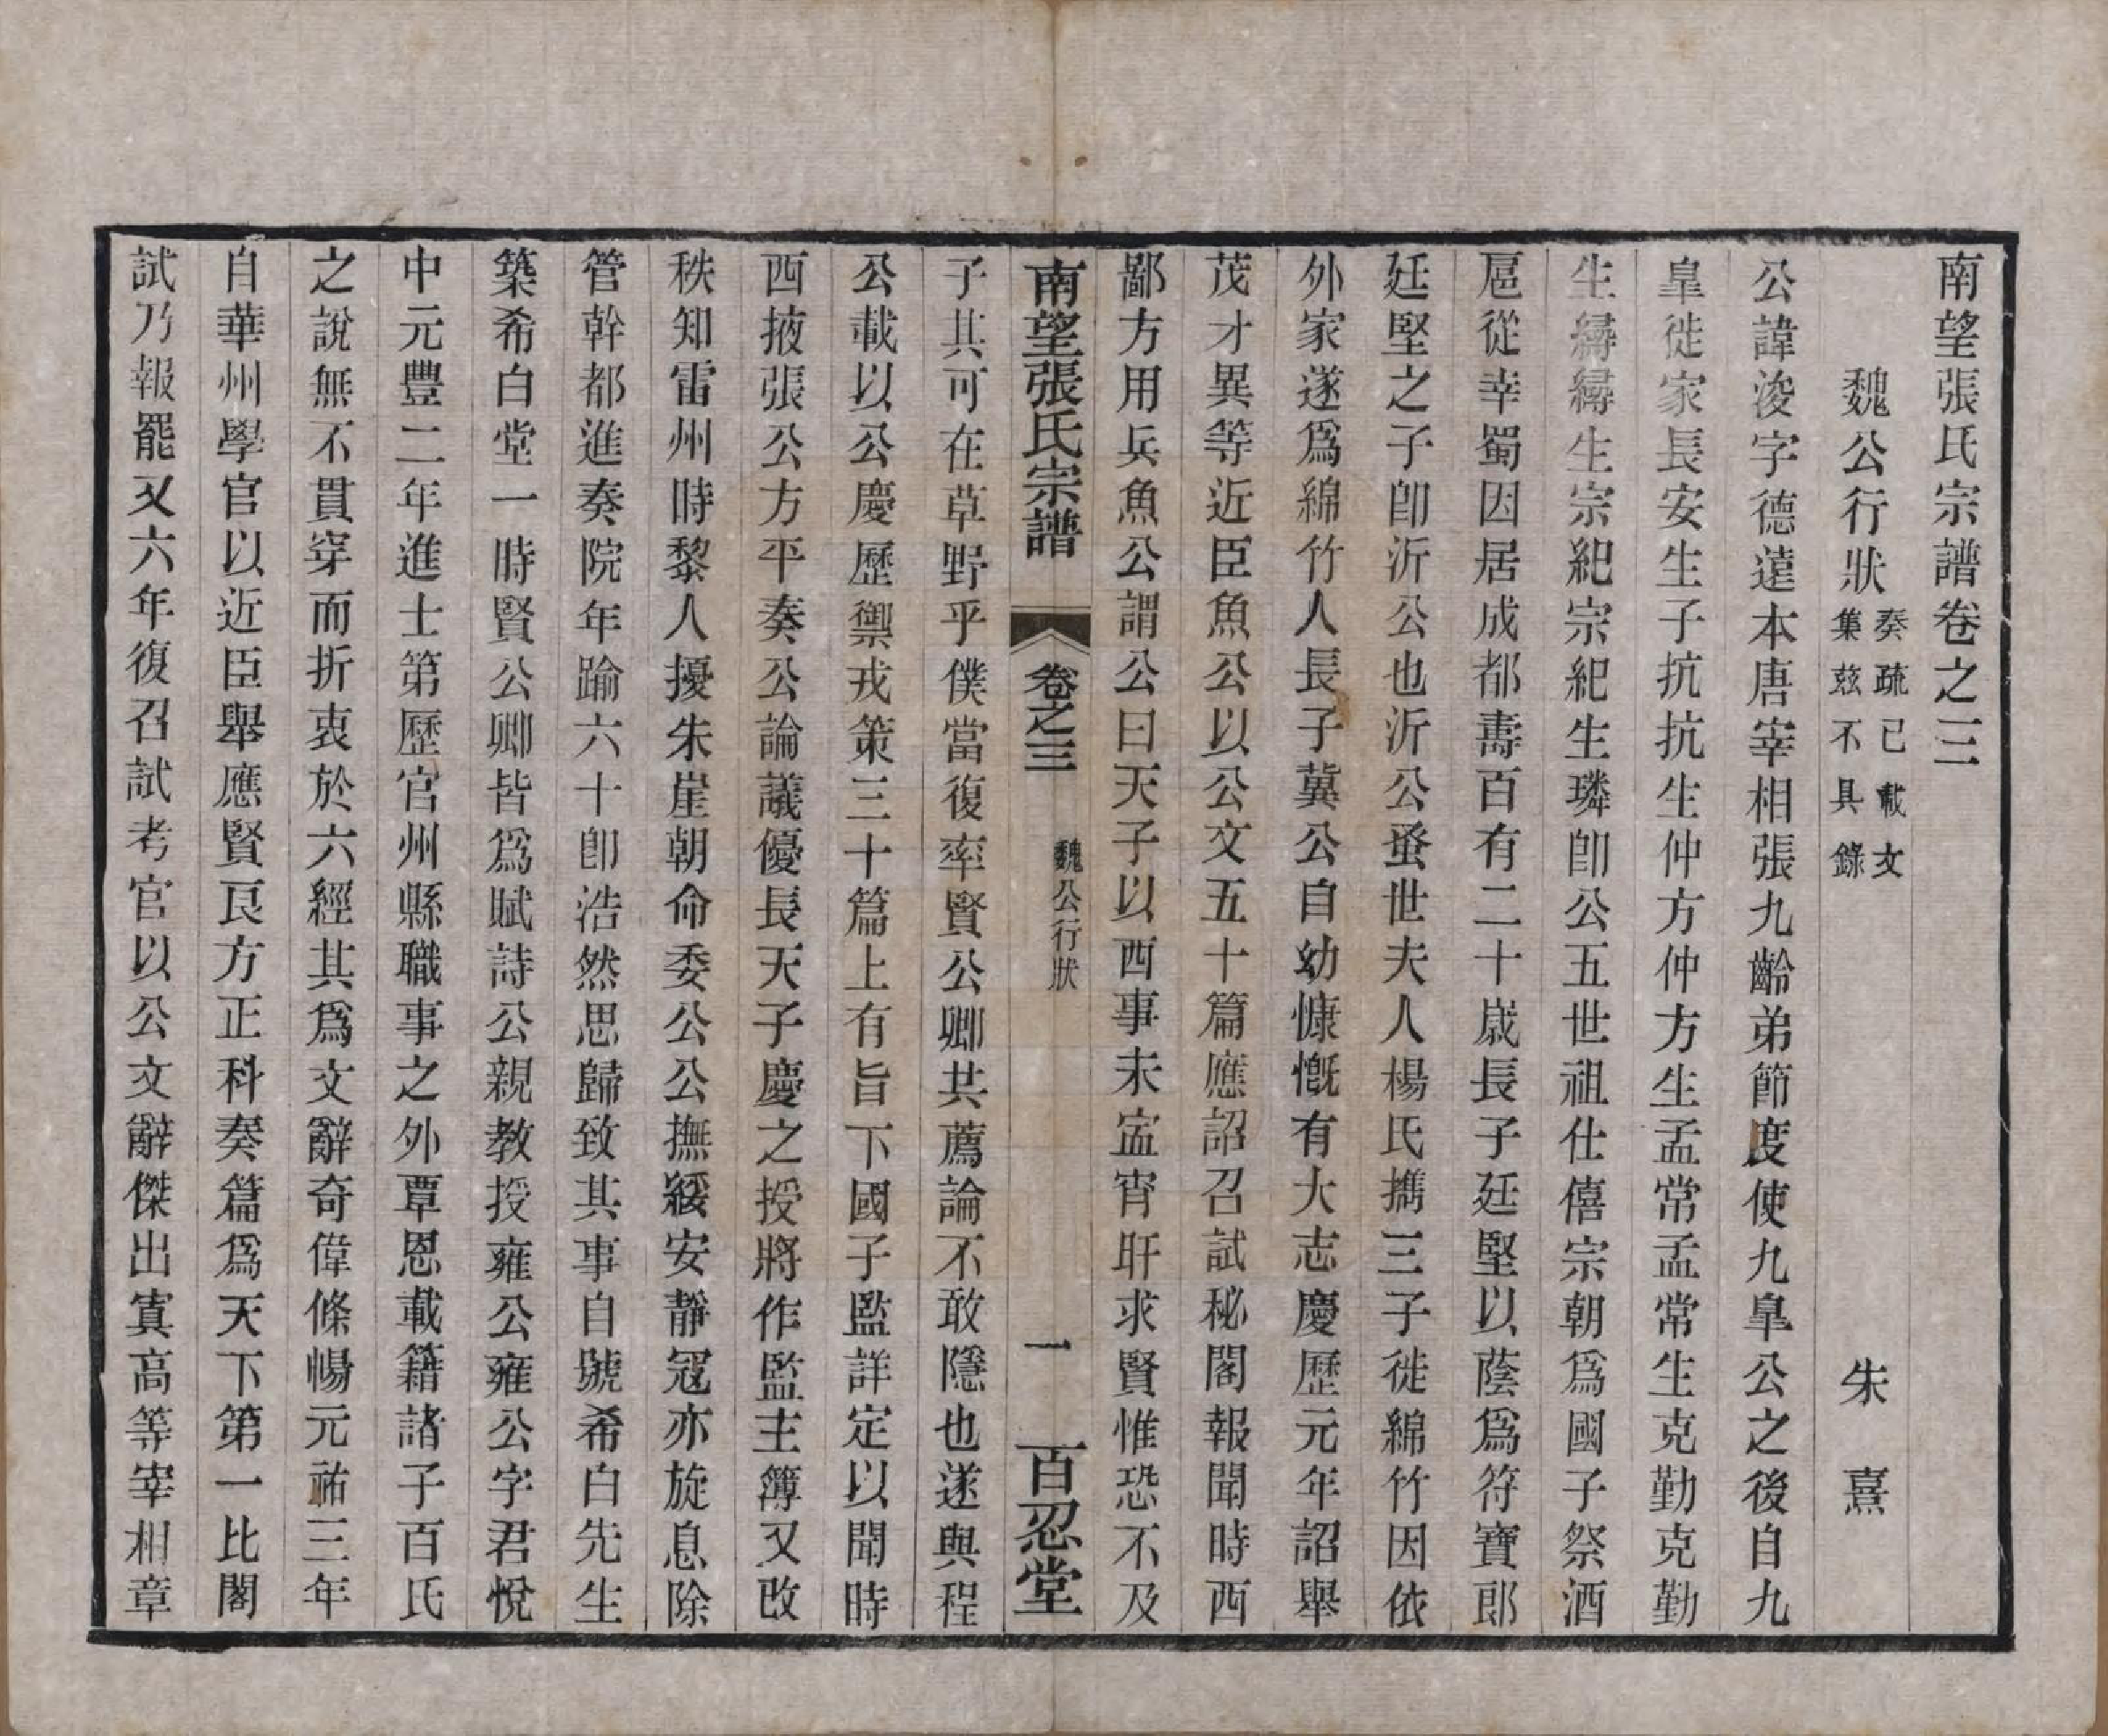 南望張氏宗譜卷之三
魏公行狀 奏疏已載文集茲不具錄 朱熹
公諱浚字德遠本唐宰相張九齡弟節度使九臯公之後自九
臯徙家長安生子抗抗生仲方仲方生孟常孟常生克勤克勤
生縟縟生宗紀宗紀生璘卽公五世祖仕僖宗朝爲國子祭酒
扈從幸蜀因居成都壽百有二十歲長子廷堅以蔭爲符寶郎
廷堅之子卽沂公也沂公蚤世夫人楊氏擕三子徙綿竹因依
外家遂爲綿竹人長子冀公自幼慷慨有大志慶歷元年詔舉
茂才異等近臣魚公以公文五十篇應詔召試秘閣報聞時西
鄙方用兵魚公謂公曰天子以西事未寍宵旰求賢惟恐不及
南望張氏宗譜 卷之三 魏公行狀 一 百忍堂
子其可在草野乎僕當復率賢公卿共薦論不敢隱也遂與程
公載以公慶歷禦戎策三十篇上有旨下國子監詳定以聞時
西掖張公方平奏公論議優長天子慶之授將作監主簿又改
秩知雷州時黎人擾朱崖朝命委公公撫綏安靜冦亦旋息除
管幹都進奏院年踰六十卽浩然思歸致其事自號希白先生
築希白堂一時賢公卿皆爲賦詩公親教授雍公雍公字君悅
中元豐二年進士第歷官州縣職事之外覃恩載籍諸子百氏
之說無不貫穿而折衷於六經其爲文辭奇偉條暢元祐三年
自華州學官以近臣舉應賢良方正科奏篇爲天下第一比閣
試乃報罷又六年復召試考官以公文辭傑出寘高等宰相章